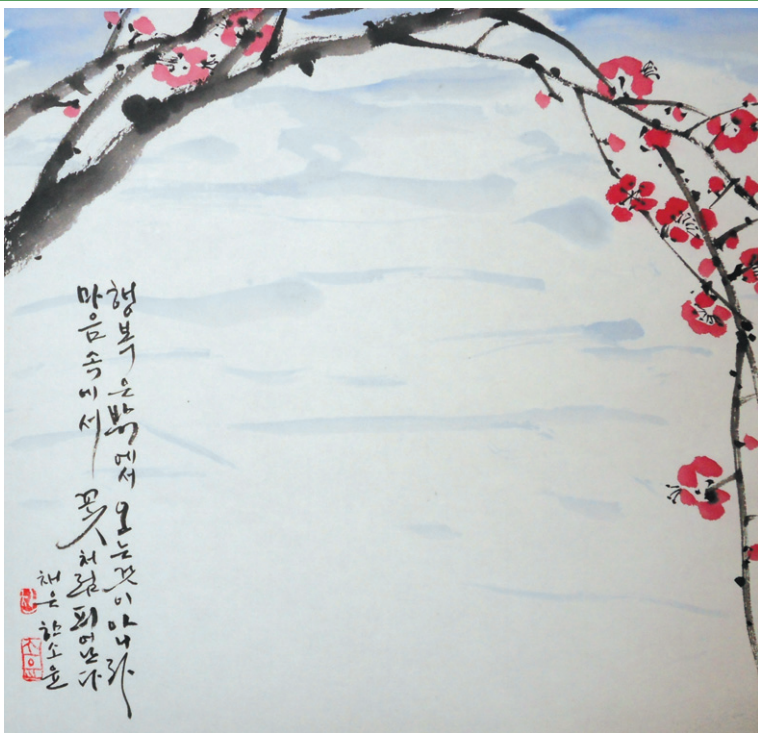 행복은 밖에서 오는것이 아니라
마음 속에서 꽃처럼 피어난다
채운 한소윤